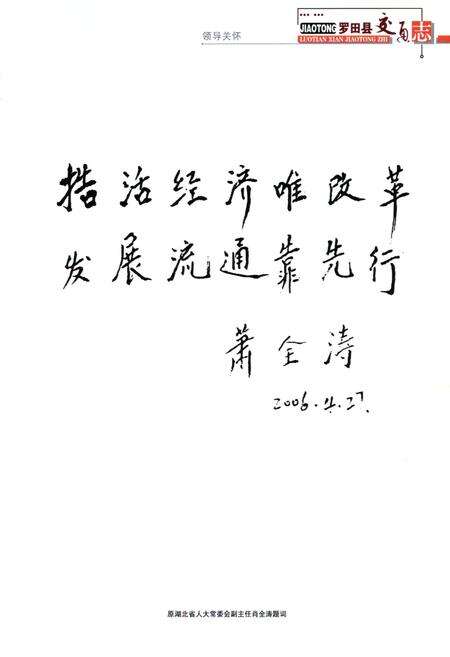 领导关怀
JIAOTONG 罗田县 交通志
LUOTIAN XIAN JIAOTONG ZHI
搞活经济唯改革
发展流通靠先行
萧全涛
2006.4.27.
原湖北省人大常委会副主任肖全涛题词